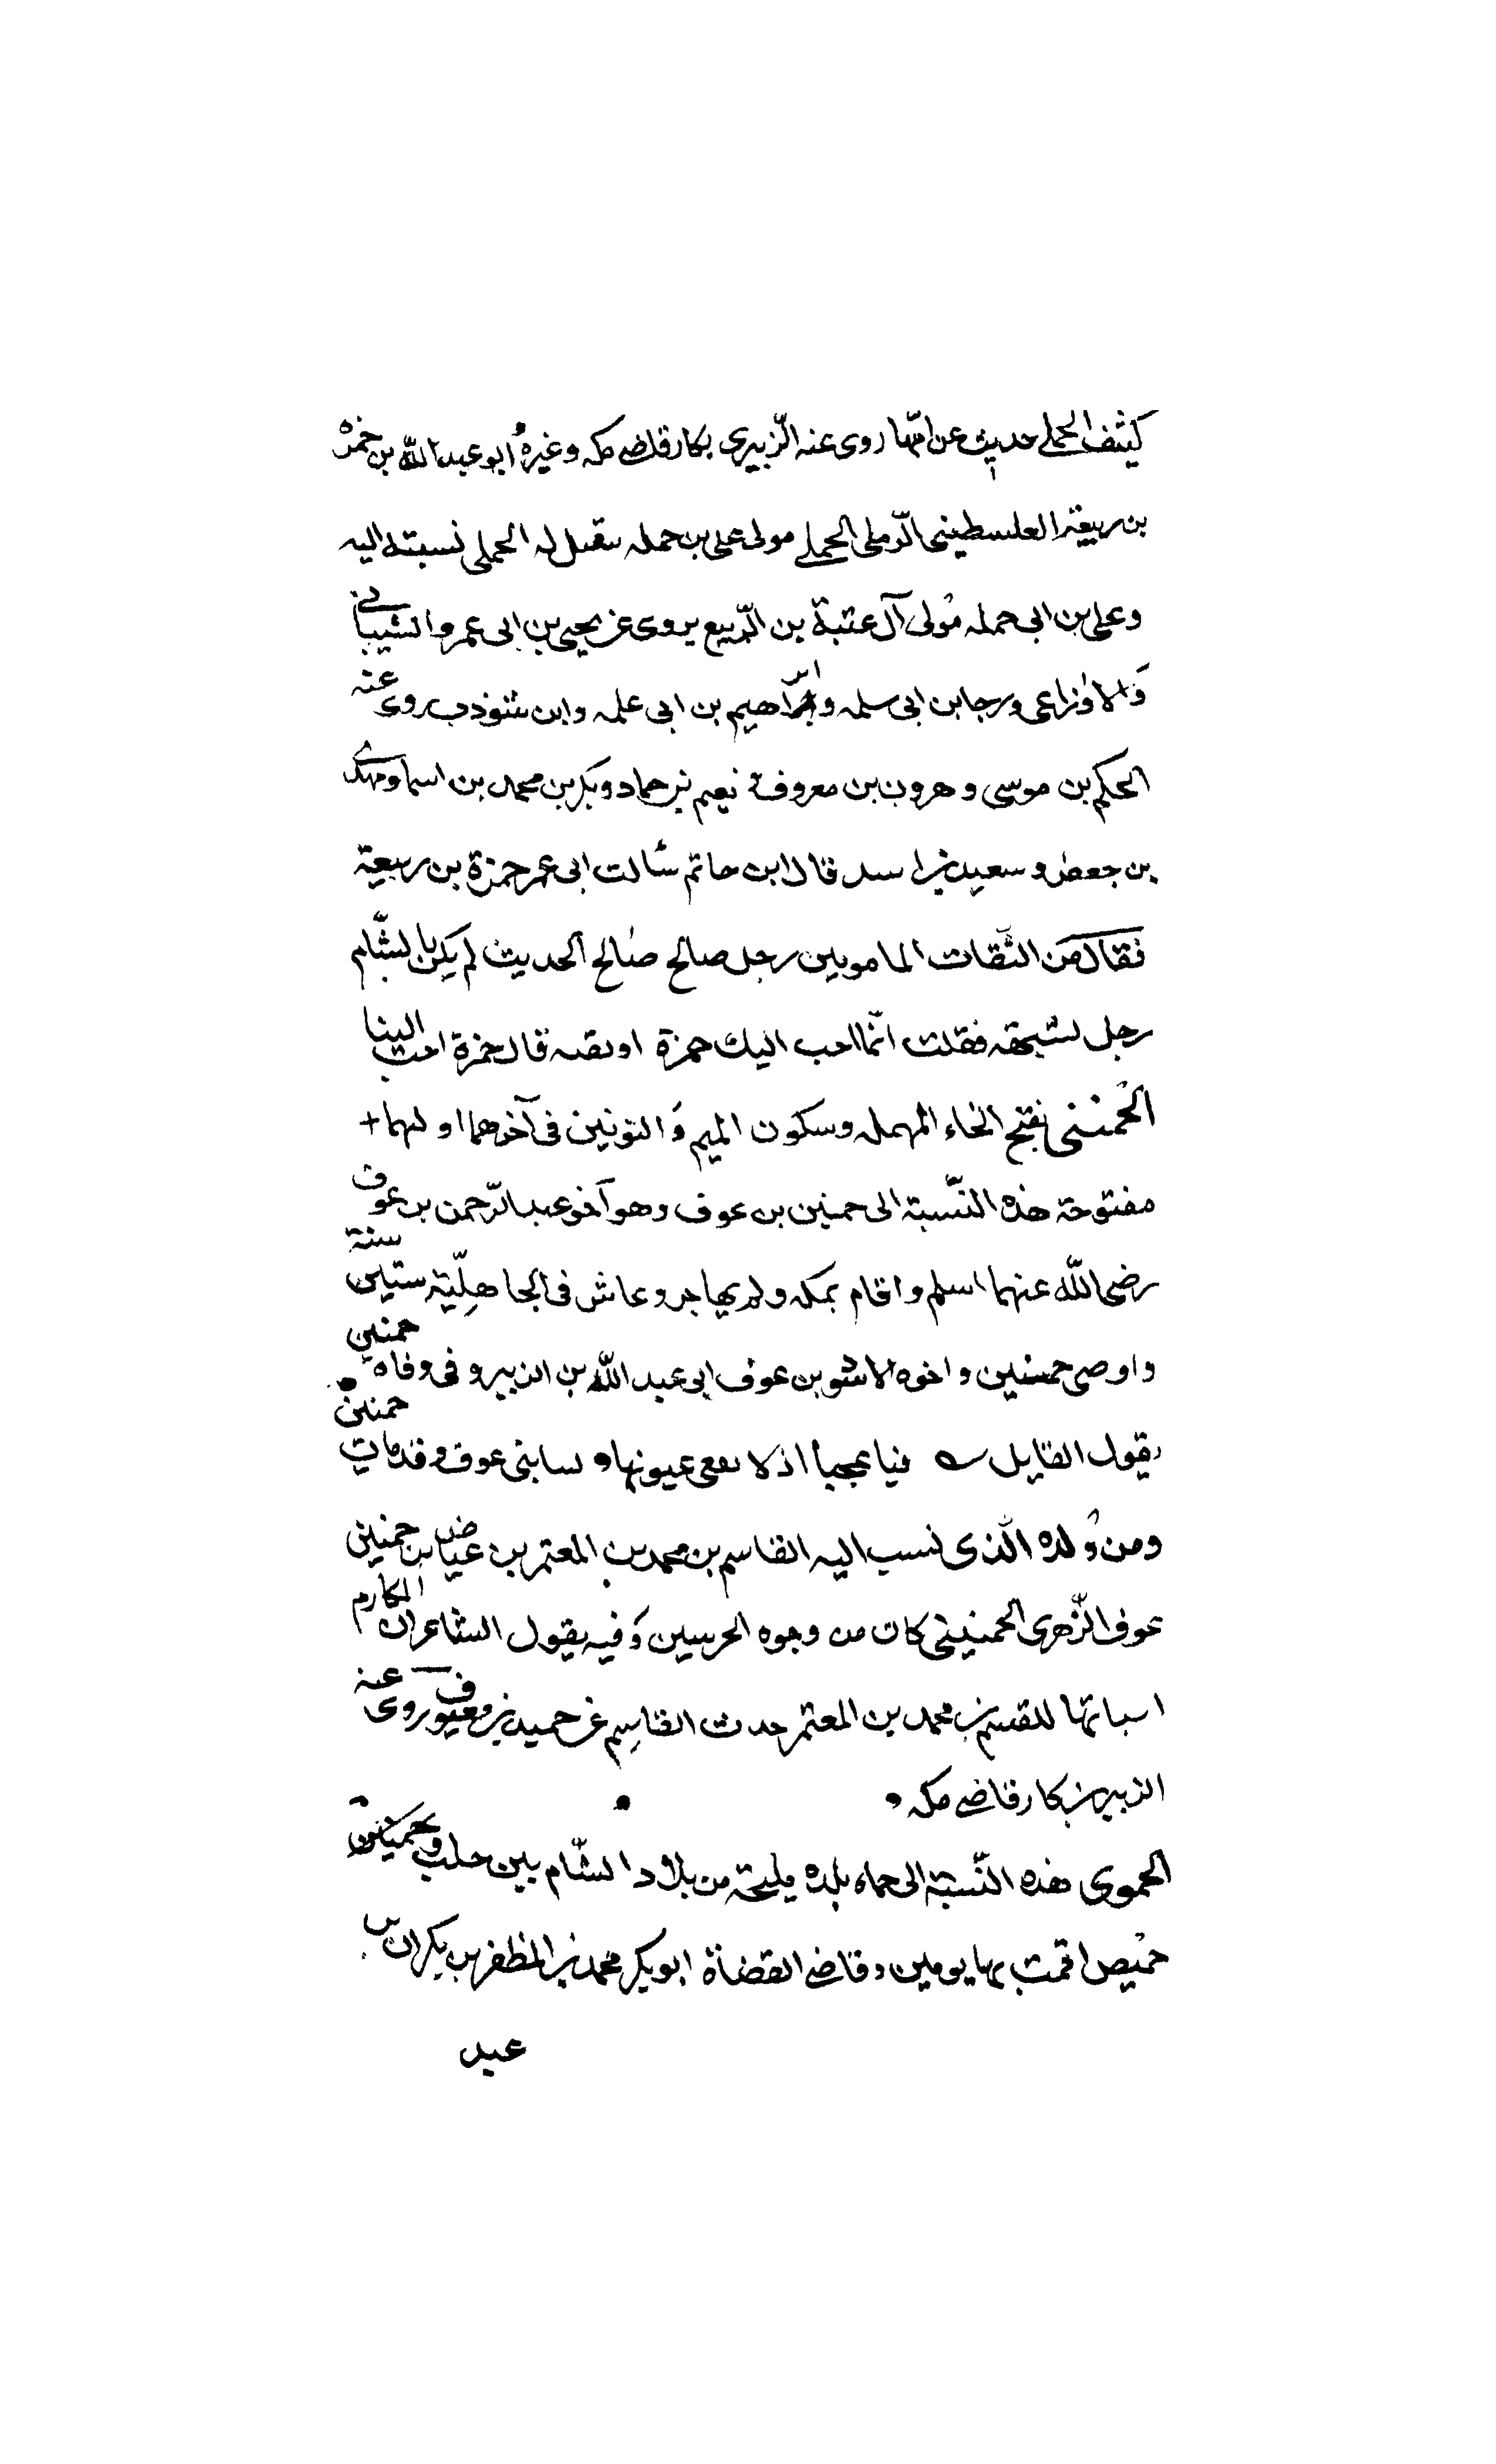 كيثف الحملى حديث عن امّها روى عنه الزّبيرى بكار قاضى مكه وغيره ابو عبد الله بن حمزه
بن ربيعة العلسطينى الرّملى الحملى مولى على بن حمله فقيل له الحملى نسبته اليه
وعلى بن ابى حمله مولى آل عتبة بن الرّبيع يروى عن يحيى بن ابى عمرو الشيبانى
والاوزاعى ورجا بن ابى سلمه وابراهيم بن ابى علمه وابن شوذب روى عنه
الحكم بن موسى وهرون بن معروف نعيم بن حماد وبكر بن محمد بن اسما ومهدى
بن جعفر وسعيد بن اسد قال ابن حاتم سالت ابى عمر حمزة بن ربيعة
فقال من الثّقات المامونين رجل صالح صالح الحديث لم يكن بالشّام
رجل يشبهه فقلت انّما احب اليك حمزة او بقيه قال حمزة احب الينا
الحمننى بفتح الحاء المهمله وسكون الميم والنونين فى آخرهما اولهما
مفتوحة هذه النّسبة الى حمنين بن عوف وهو آخو عبد الرّحمن بن عوف
رضى الله عنهما اسلم واقام بمكه ولم يهاجر وعاش فى الجاهليّة ستين سنة
واوصى حمنين واخوه الاسو بن عوف الى عبد الله بن الزبير وفى وفاه حمنين
يقول القايل فيا عجبا اذ لا عيونها نسا بنى عوف وقد مات حمنين
ومن ولده الّذى نسب اليه القاسم بن محمد بن المعتمر بن عياض بن حمنين
عوف الزّهرى الحمنينى كان من وجوه الحرسين وفيه يقول الشاعر ان المكارم
اسبابها للقسم بن محمد بن المعتمر حدث القاسم عن حميد بن معيوف روى عنه
الزبير بن بكار قاضى مكه
الحموى هذه النّسبة الى حماه بلده مليحة من بلاد الشّام بين حلب
حمص اقمت بها يومين وقاضى القضاة ابو بكر محمد بن المظفر بن بكران بن
عبد